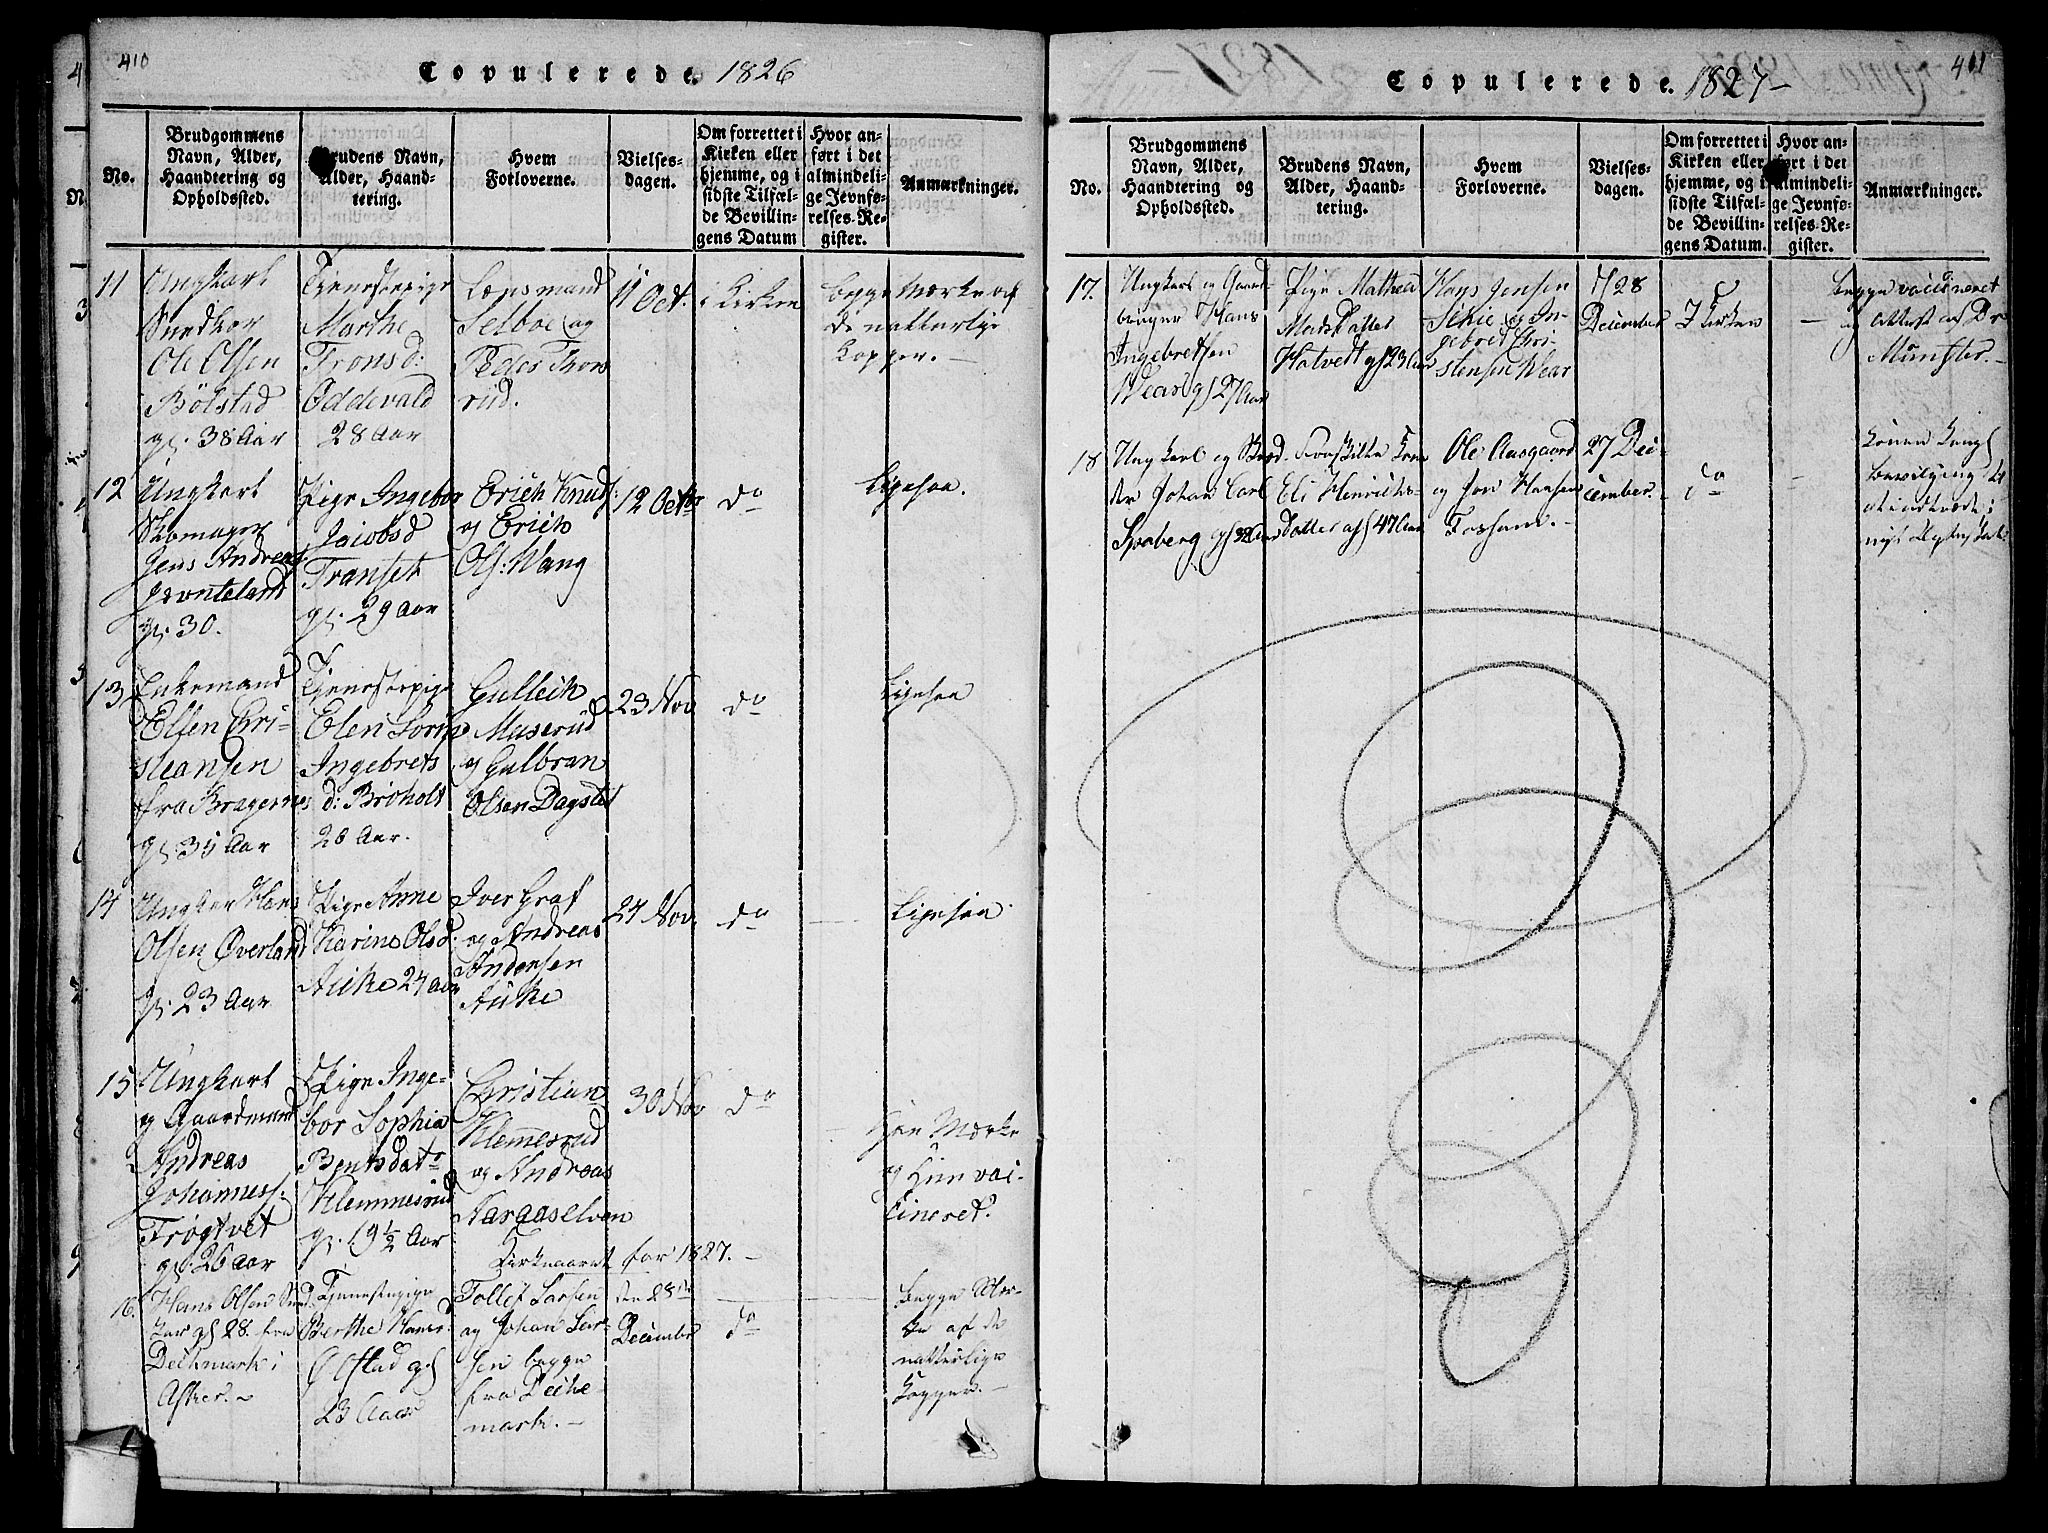 410
Copulerede. 1826
No.
Brudgommens
Navn, Alder,
Haandtering og
Opholdssted.
Brudens Navn,
Alder, Haand-
tering.
Hvem
Forloverne.
Vielses-
dagen.
Om forrettet i
Kirken eller
hjemme, og i
sidste Tilfæl-
de Bevillin-
gens Datum
Hvor an-
ført i det
almindeli-
ge Jevnfø-
relses-Re-
gister.
Anmærkninger.
11
Ungkarl
Snedker
Ole Olsen
Bölstad
gl. 38 Aar
Tjenestepige
Marthe
Tronsd:
Oddevald
28 Aar
Lensmand
Selboe og
Peder Thon
rud.
11 Oct.
i Kirken
begge Mærke af
de natturlige
Kopper. —
12
Ungkarl
Skomager
Jens Andreas
gl. 30.
Pige Ingebor
Jacobsd
Transet
gl. 29 Aar
Erich Knuds:
og Erich
Ols: Wang
12 Octbr
do
Ligesaa.
13
Enkemand
Elsen Chri-
stiansen
fra Bragernes
gl. 35 Aar
Tjenestepige
Elen Sorpe
Ingebrets
d: Bröholt
26 Aar.
Gulleik
Muserud
og Gulbran
Olsen Dagsted
23 Nov
do
Ligesaa
14
Ungkar Hans
Olsen Overland
gl. 23 Aar
Pige Anne
Karine Olsd.
Auke 24 Aar
Iver Graf
og Andreas
Andersen
Auke
27 Nov.
do
Ligesaa.
15
Ungkarl
og Gaardmand
Andreas
Johanness.
Trögtvet
gl. 26 Aar
Pige Inge-
bor Sophia
Bentsdatr
Klemmesrud
gl. 19 ½ Aar
Christian
Klemmesrud
og Andreas
Naraaselven
30 Nov
do
Han Mærke
og Hun vac-
cineret.
Kirkeaaret for 1827. —
16.
Hans Olsen
gl 28. fra
Deikmark i
Asker. —
Tjenestepige
Berthe Hansd.
Ofstad gl
23 Aar
Tollef Larsen
og Johan Lar-
sen begge
fra Deike-
mark. —
den 28de
December
do
begge Mær-
ke af de
natturlige
Kopper. —
411
Copulerede. 1827 —
No.
Brudgommens
Navn, Alder,
Haandtering og
Opholdssted.
Brudens Navn,
Alder, Haand-
tering.
Hvem
Forloverne.
Vielses-
dagen.
Om forrettet i
Kirken eller
hjemme, og i
sidste Tilfæl-
de Bevillin-
gens Datum.
Hvor an-
ført i det
almindeli-
ge Jevnfø-
relses-Re-
gister.
Anmærkninger.
17.
Ungkarl og Gaard-
bruger Hans
Ingebretsen
Wear gl 27 Aar
Pige Mathea
Mads Datter
Hatvedt gl 23 Aar
Hans Jensen
og In-
gebret Chri-
stensen Wear
28
December
I Kirken
—
begge vaccineret
og Attest af Dr
Münster. —
18
Ungkarl og
Johan Carl
Spaberg
Fraskilte Kone
Eli Henrichs-
datter gl 47 Aar
Ole Aasgaard
og Jon Hansen
Fossum. —
27 De-
cember.
do
—